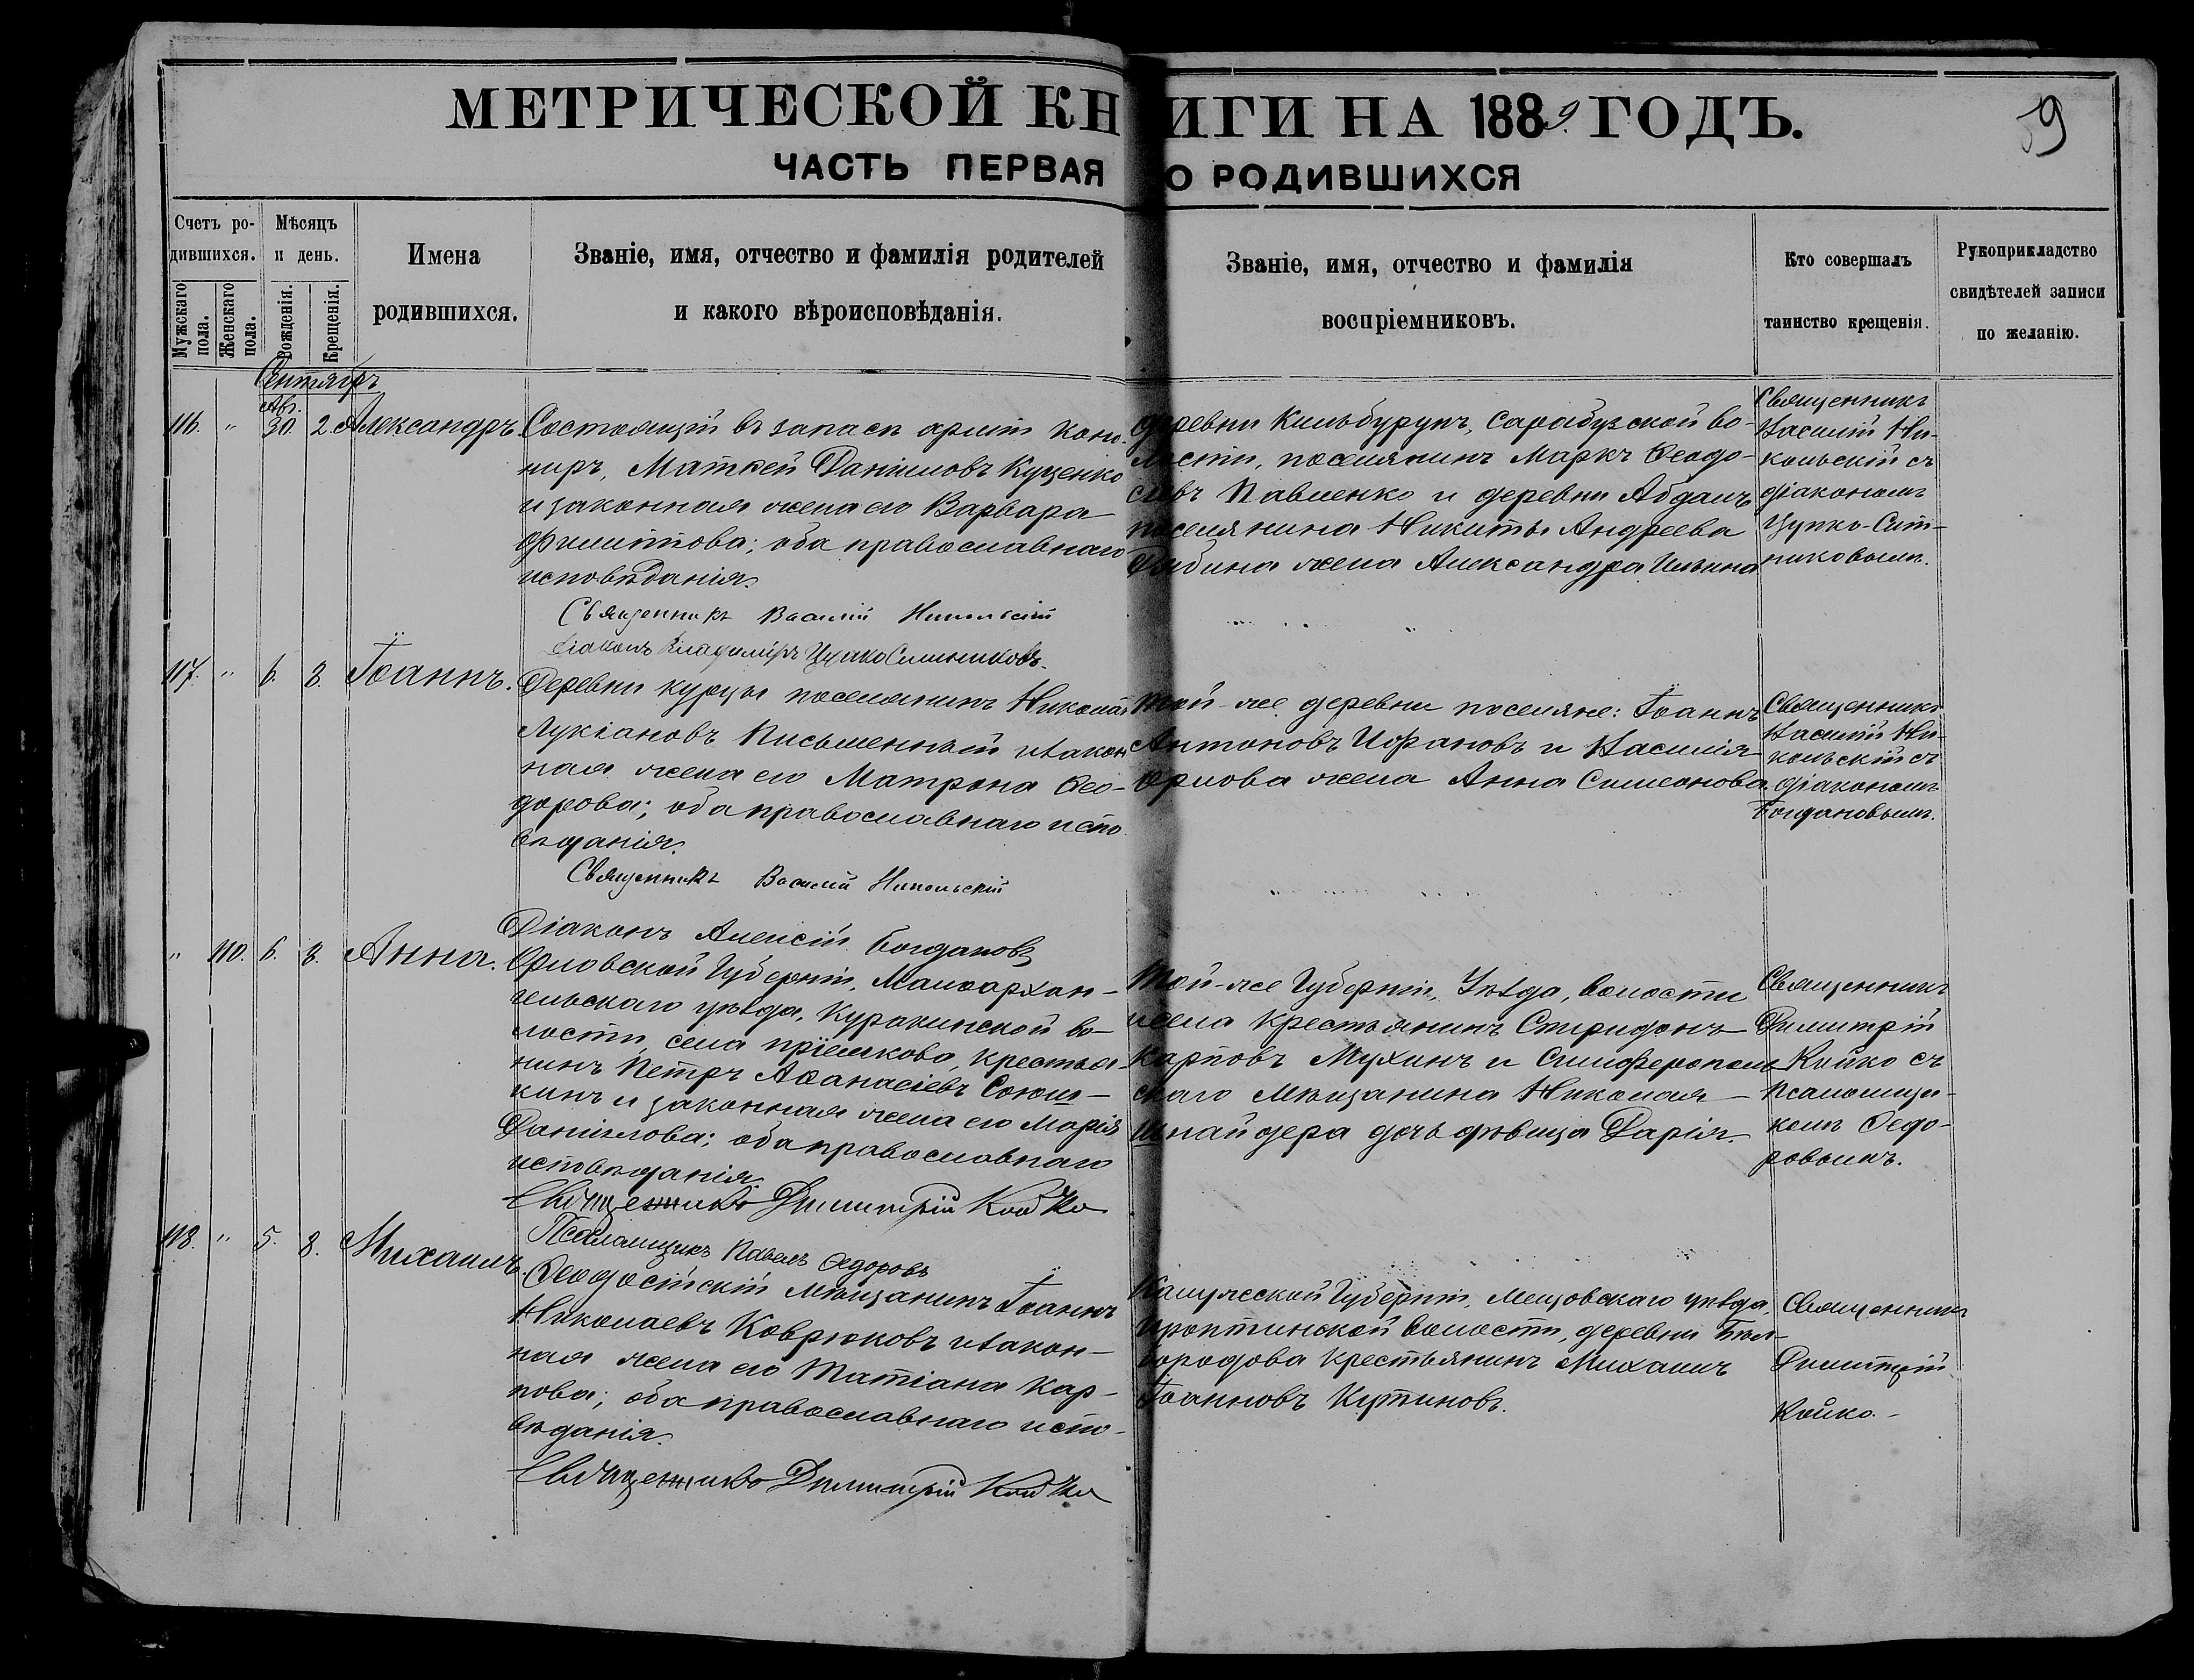 МЕТРИЧЕСКОЙ КНИГИ НА 1889. ГОДЪ.
59
ЧАСТЬ ПЕРВАЯ О РОДИВШИХСЯ
Счетъ ро-
дившихся.
Мужскаго пола.
Женскаго пола.
Мѣсяцъ
и день.
Рожденія.
Крещенія.
Имена
родившихся.
Званіе, имя, отчество и фамилія родителей
и какого вѣроисповѣданія.
Званіе, имя, отчество и фамилія
воспріемниковъ.
Кто совершалъ
таинство крещенія.
Рукоприкладство
свидѣтелей записи
по желанію.
Сентябрь
116. " Авг. 30. 2 Александръ.
Состоящій въ запасѣ арміи кано-
ниръ, Матѳей Даніиловъ Куценко
и законная жена его Варвара
Филиппова; оба православнаго
исповѣданія.
Священникъ Василій Никольскій
Діаконъ Владиміръ Цапко Ситниковъ.
деревни Кильбурунъ, Сарабузской во-
лости, поселянинъ Маркъ Ѳеодо-
сіевъ Павленко и деревни Абдалъ
поселянина Никиты Андреева
жена Александра Ильина
Священникъ
Василій Ни-
кольскій съ
діакономъ
Цупко-Сит-
никовымъ.
117. " 6. 8. Іоаннъ.
Деревни Курцы поселянинъ Николай
Лукіановъ Письменный и закон-
ная жена его Матрона Ѳео-
дорова; оба православнаго испо-
вѣданія.
Священникъ Василій Никольскій
Діаконъ Алексій Богдановъ
Той-же деревни поселяне: Іоаннъ
Антоновъ и Василія
Орлова жена Анна Симеонова.
Священникъ
Василій Ни-
кольскій съ
діакономъ
Богдановымъ.
" 110. 6. 8. Анна.
Орловской Губерніи, Малоархан-
гельскаго уѣзда, Куракинской во-
лости, села крестья-
нинъ Петръ Аѳанасіевъ Союш-
кинъ и законная жена его Марія
Даніилова; оба православнаго
исповѣданія.
Священникъ Димитрій Койко
Псаломщикъ Павелъ Ѳедоровъ
Той-же Губерніи, Уѣзда, волости
и села крестьянинъ Спиридонъ
Карповъ Мухинъ и Симферополь-
скаго мѣщанина Николая
Шнайдера дочь дѣвица Дарія.
Священникъ
Димитрій
Койко съ
псаломщи-
комъ Ѳедо-
ровымъ.
118. " 5. 8. Михаилъ.
Ѳеодосійскій мѣщанинъ Іоаннъ
Николаевъ Коврюковъ и закон-
ная жена его Татіана Кар-
пова; оба православнаго испо-
вѣданія.
Священникъ Димитрій Койко
Калужской Губерніи, Мещовскаго уѣзда,
волости, деревни Бѣл-
городова крестьянинъ Михаилъ
Іоанновъ Кутиновъ.
Священникъ
Димитрій
Койко.-